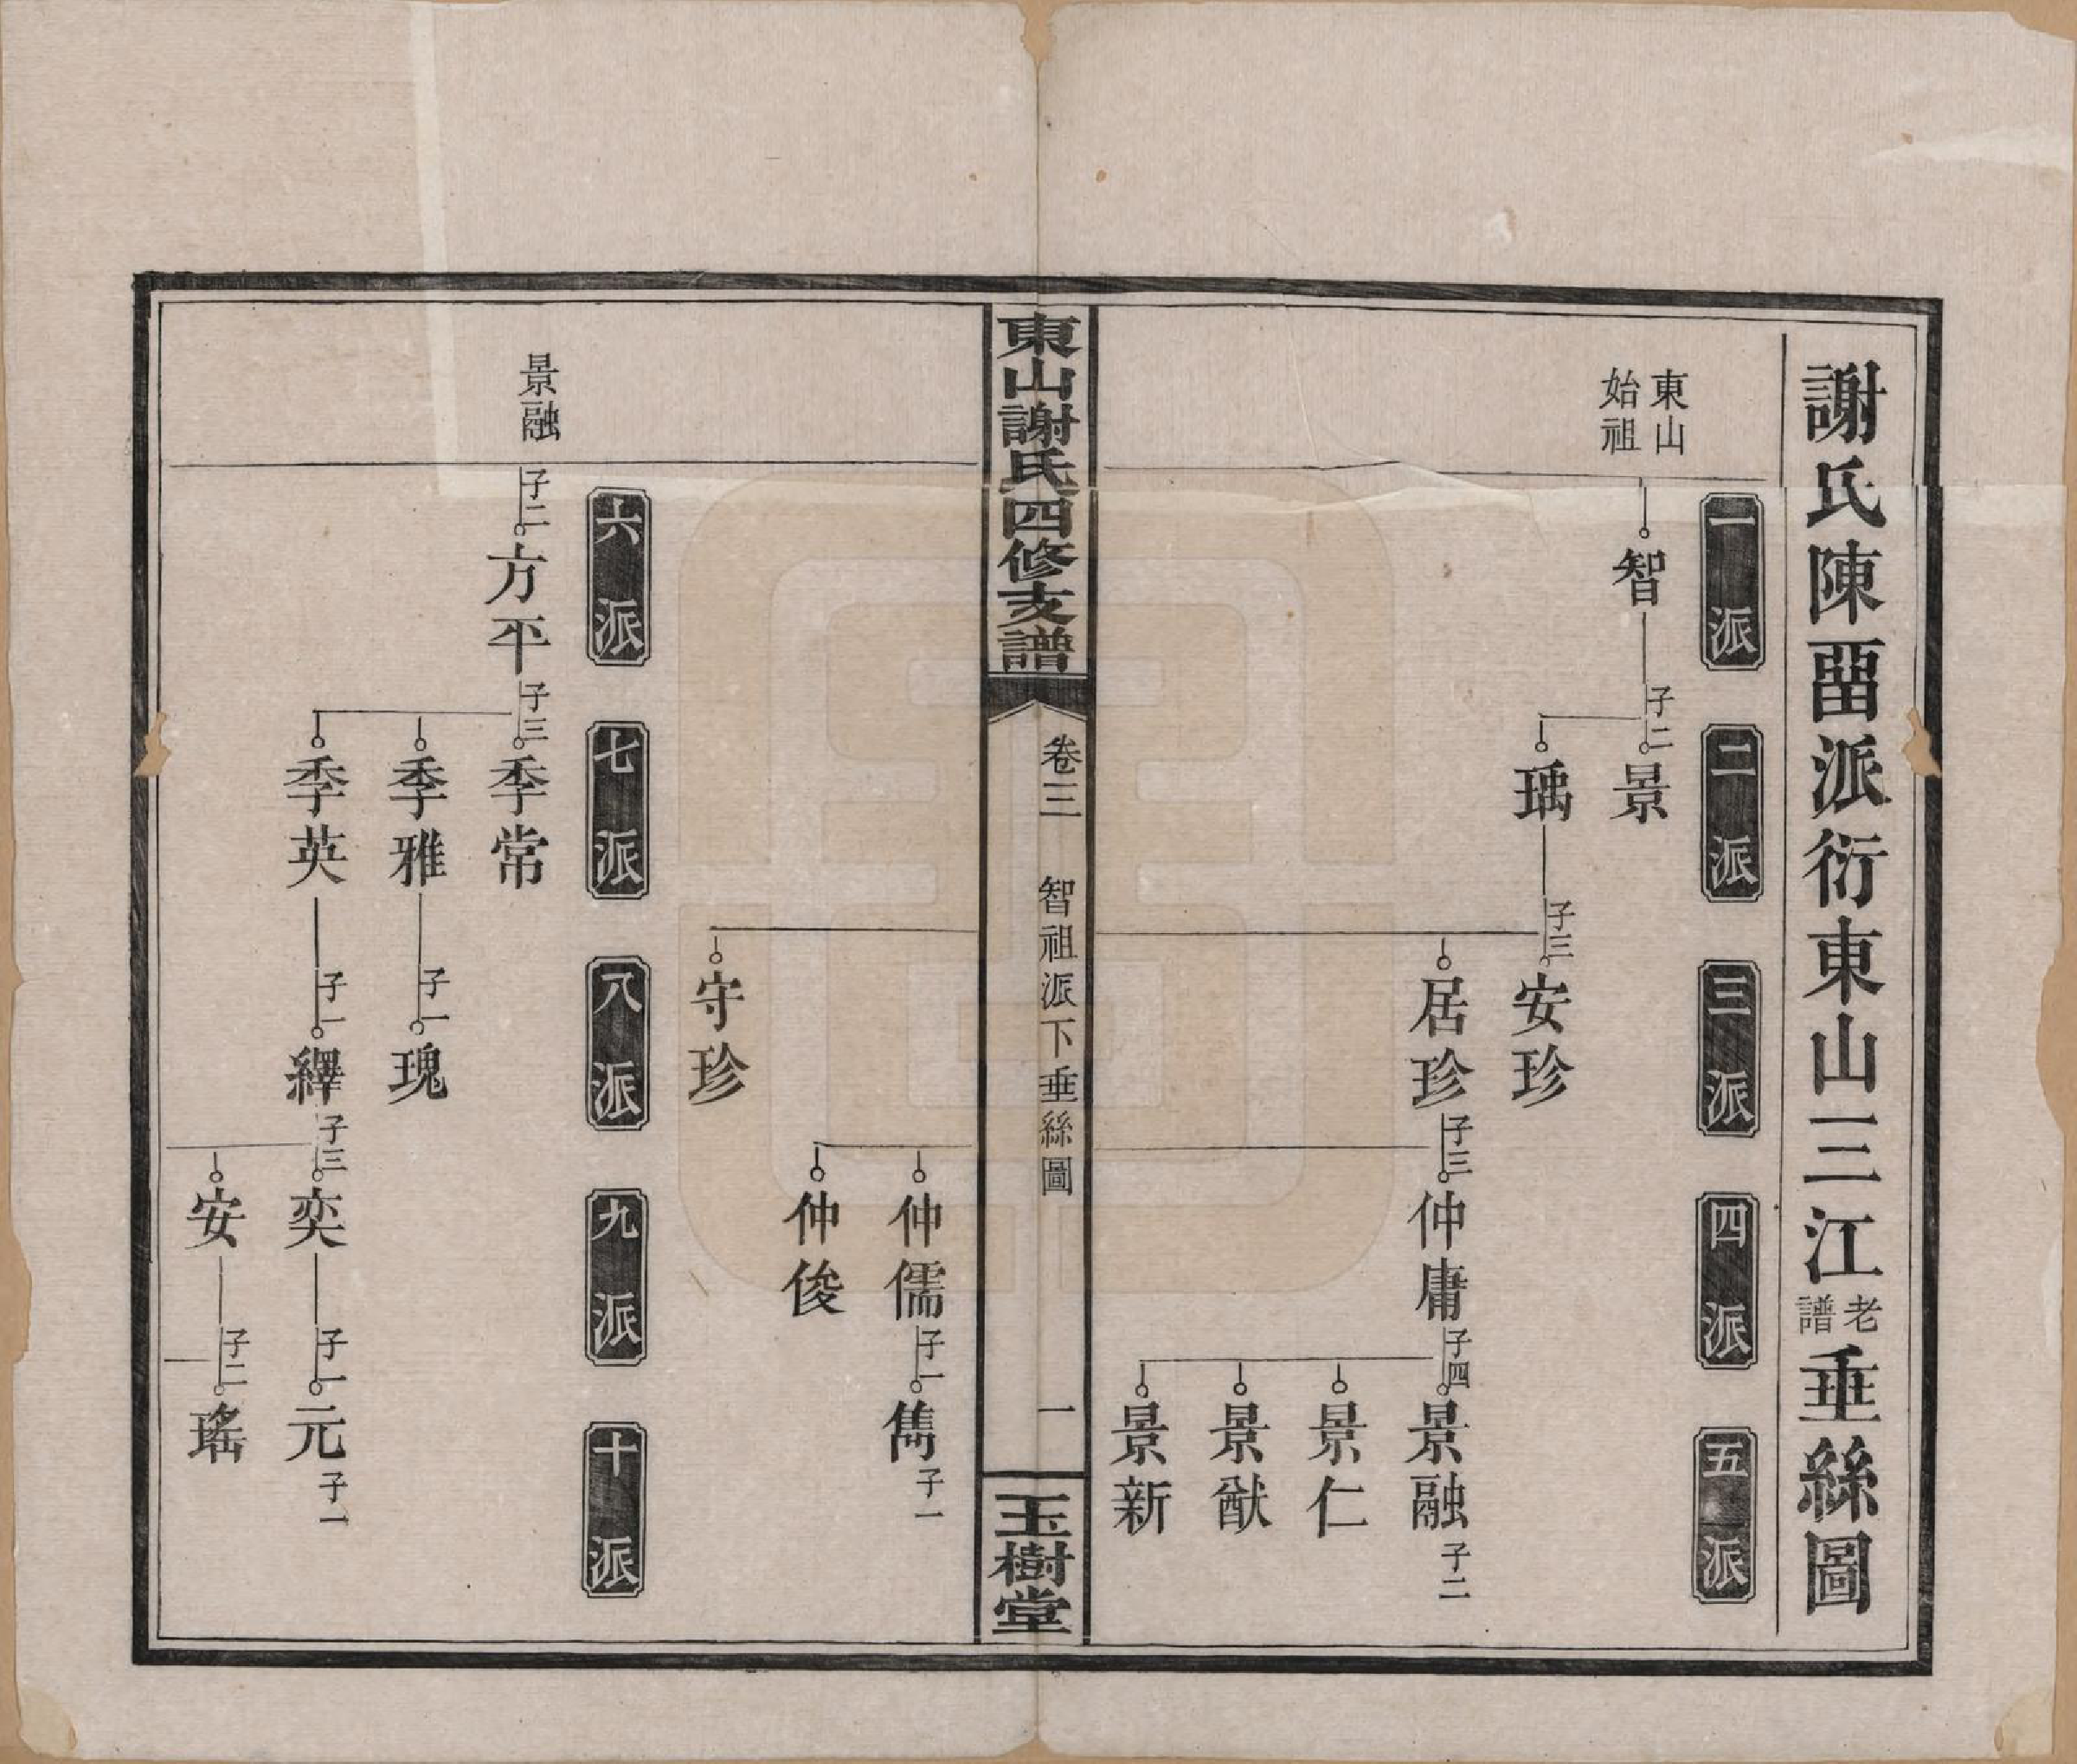 謝氏陳畱派衍東山三江老譜垂絲圖
一派
二派
三派
四派
五派
東山始祖
智
子二
景
瑀
子三
安珍
居珍
子三
仲庸
子四
景融
子二
景仁
景猷
景新
東山謝氏四修支譜
卷三
智祖派下垂絲圖
一
玉樹堂
仲儒
子一
雋
子一
仲俊
守珍
六派
七派
八派
九派
十派
景融
子二
方平
子三
季常
季雅
子一
瑰
季英
子一
繹
子三
奕
子一
元
子一
安
子二
瑤